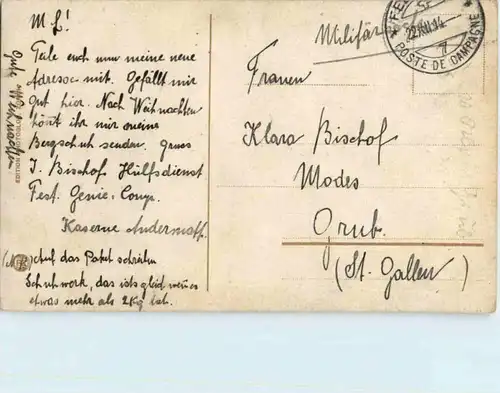 M L!
Teile euch nun meine neue
Adresse mit. Gefällt mir
gut hier. Nach Weihnachten
könnt ihr mir meine
Bergschuh senden. Gruss
J. Bischof Hülfsdienst
Fest. Genie. Comp.
Kaserne Andermatt.
auf das Paket schreiben
Schuhwerk, das ists gleich wenn es
etwas mehr als 2Kg ist.
Gute Weihnachten
EDITION PHOTOGLOB
Militär
22.XII.14
7
POSTE DE CAMPAGNE
Frauen
Klara Bischof
Modes
Grub.
(St. Gallen)